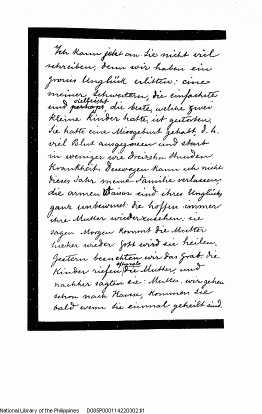 Ich kann jetzt an Sie nicht viel
schreiben, denn wir haben ein
grosses Unglück erlitten: eine
meiner Schwestern, die einfachste
vielleicht
und perhaps, die beste, welche zwei
kleine Kinder hatte, ist gestorben.
Sie hatte eine Missgeburt gehabt, d. h.
viel Blut ausgegossen und starb
in weniger wie dreizehn Stunden
Krankheit. Deswegen kann ich nicht
dieses Jahr meine Familie verlassen;
die armen Waisen sind ihres Unglücks
ganz unbewusst: die hoffen immer
ihre Mutter wiederzusehen; sie
sagen Morgen kommt die Mutter
hieher wieder Gott wird sie heilen.
Gestern besuchten wir das Grab; die
Kinder riefen die Mutter, und
nachher sagten sie: Mutter, wir gehen
schon nach Hause, kommen Sie
bald wenn Sie einmal geheilt sind.
National Library of the Philippines